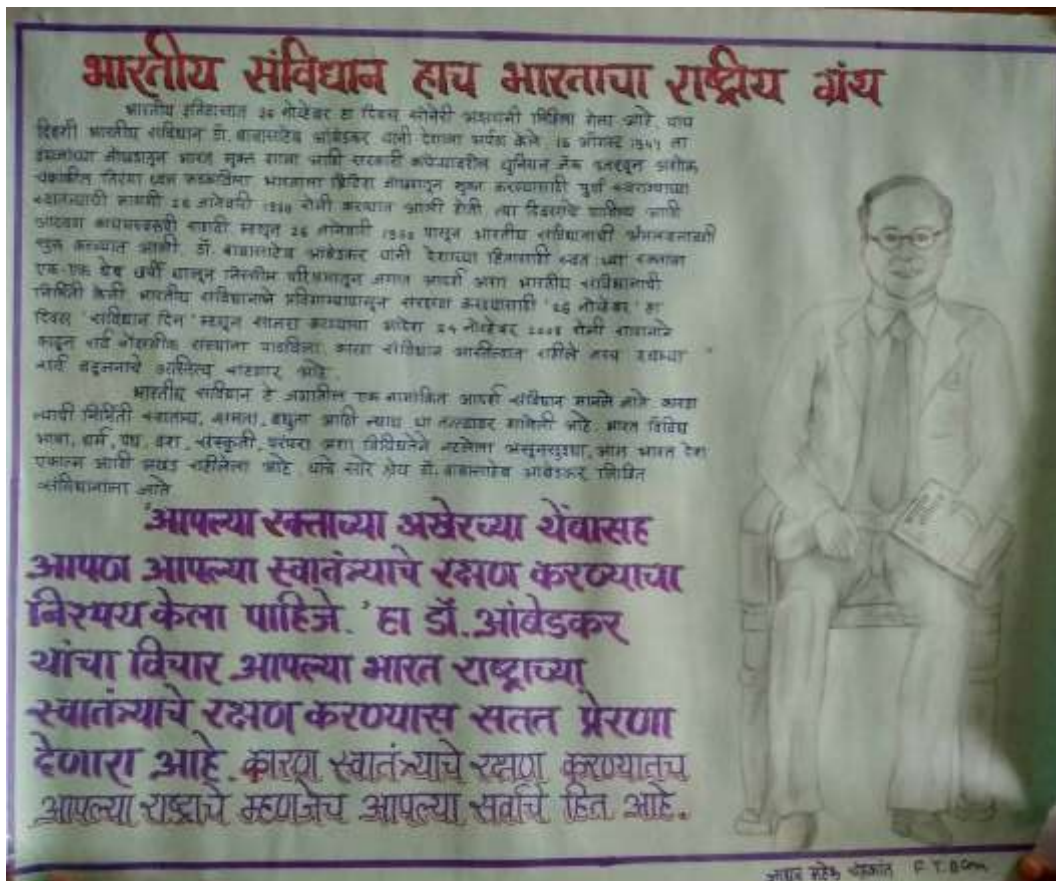 भारतीय संविधान हाच भारताचा राष्ट्रीय ग्रंथ
भारतीय इतिहासात 26 नोव्हेंबर हा दिवस सोनेरी अक्षरांनी लिहिला गेला आहे. याच
दिवशी भारतीय संविधान डॉ. बाबासाहेब आंबेडकर यांनी देशाला अर्पण केले. 15 ऑगस्ट 1947 ला
भारत मुक्त झाला आणि सरकारी युनियन जॅक उतरवून अशोक
तिरंगा ध्वज फडकविला. भारताला ब्रिटिश मुक्त करण्यासाठी पूर्ण स्वराज्याच्या
26 जानेवारी रोजी करण्यात आली होती. त्या दिवसाचे आणि
म्हणून 26 जानेवारी पासून भारतीय संविधानाची
सुरू करण्यात आली. डॉ. बाबासाहेब आंबेडकर यांनी देशाच्या हितासाठी स्वतःच्या रक्ताचा
एक-एक थेंब खर्ची घालून निस्सीम परिश्रमातून जगात आदर्श अशा भारतीय संविधानाची
निर्मिती केली. भारतीय संविधानाचे करण्यासाठी '26 नोव्हेंबर' हा
दिवस 'संविधान दिन' म्हणून साजरा करण्याचा आदेश 24 नोव्हेंबर रोजी शासनाने
काढून सर्व शैक्षणिक संस्थांना पाठविला. कारण संविधान अस्तित्वात राहीले तरच
सर्व अस्तित्व आहे.
भारतीय संविधान हे जगातील एक नामांकित आदर्श संविधान मानले जाते. कारण
त्याची निर्मिती स्वातंत्र्य, समता, बंधुता आणि न्याय या तत्वावर झालेली आहे. भारत विविध
भाषा, धर्म, पंथ, वंश, संस्कृती, परंपरा अशा विविधतेने नटलेला असूनसुद्धा, आज भारत देश
एकात्म आणि अखंड राहीलेला आहे. याचे सारे श्रेय डॉ. बाबासाहेब आंबेडकर लिखित
संविधानाला जाते
'आपल्या रक्ताच्या अखेरच्या थेंबासह
आपण आपल्या स्वातंत्र्याचे रक्षण करण्याचा
निश्चय केला पाहिजे.' हा डॉ. आंबेडकर
यांचा विचार आपल्या भारत राष्ट्राच्या
स्वातंत्र्याचे रक्षण करण्यास सतत प्रेरणा
देणारा आहे. कारण स्वातंत्र्याचे रक्षण करण्यातच
आपल्या राष्ट्राचे म्हणजेच आपल्या सर्वांचे हित आहे.
F.Y.BCom